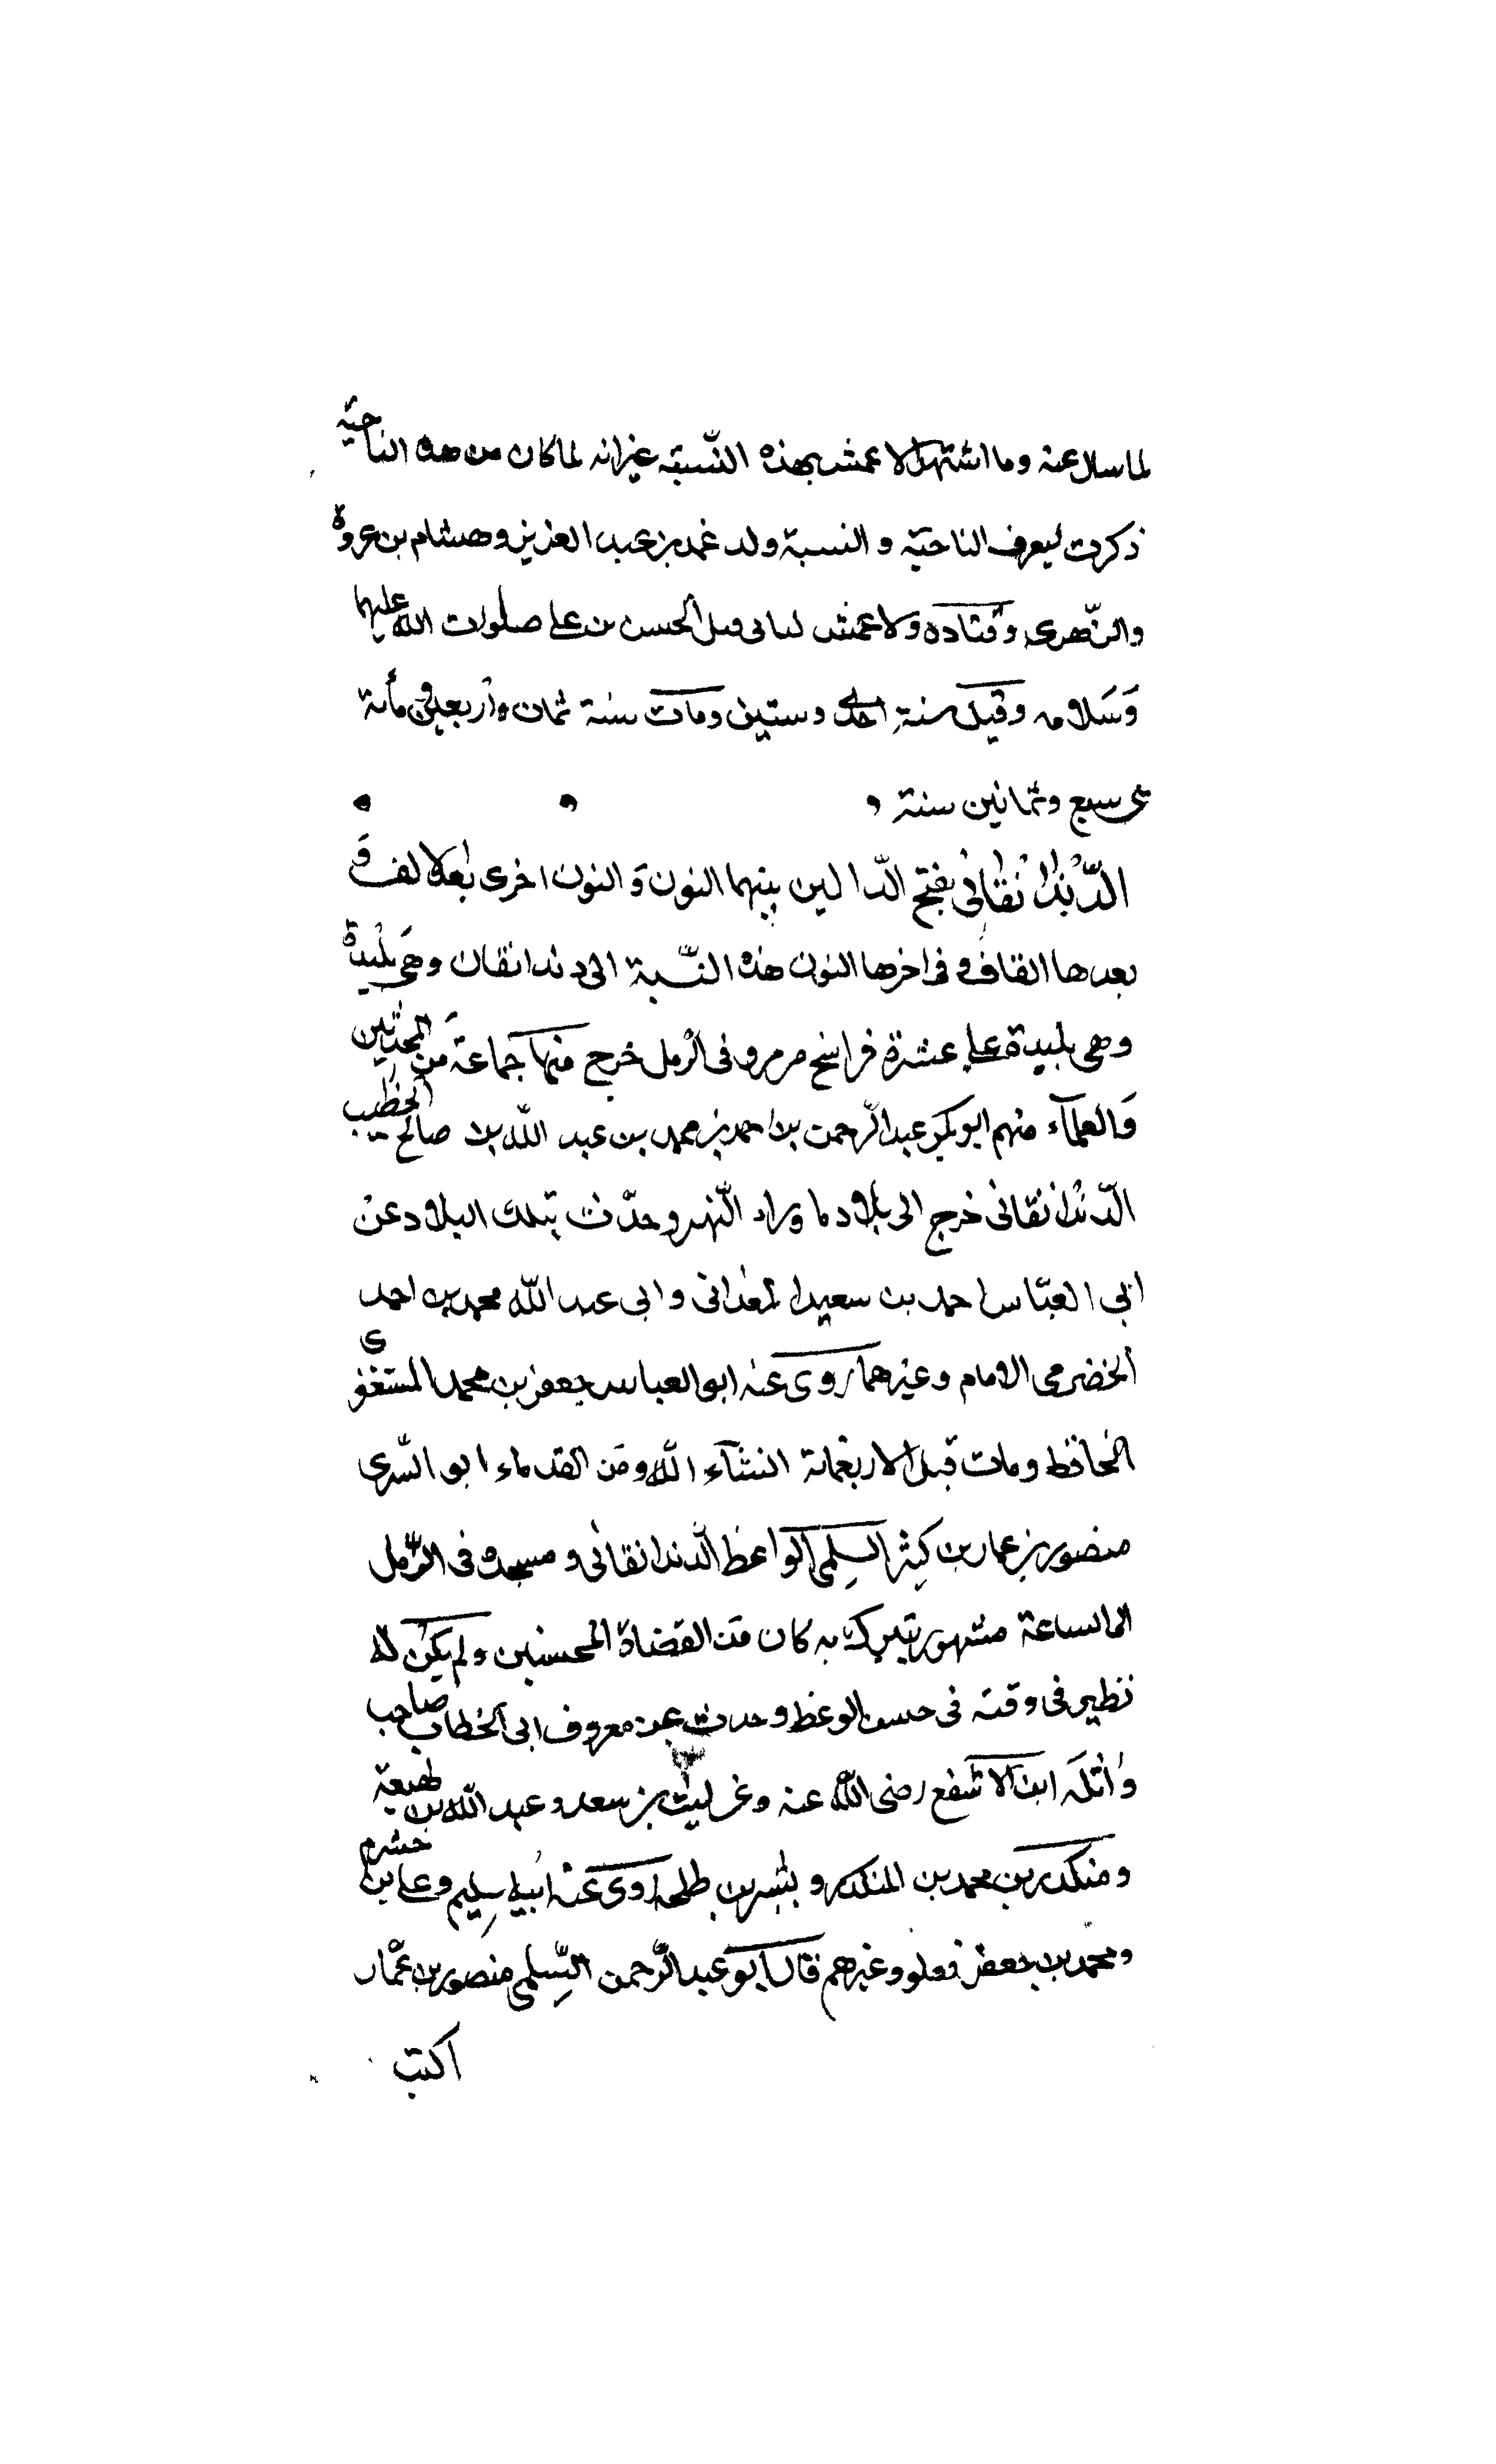 لما سال عنه وما اشتهر الاعمش بهذه النسبة غير انه لما كان من هذه الناحية
ذكرت ليعرف الناحية و النسبة ولد عمر بن عبد العزيز وهشام بن عروة
والزهرى وقتادة والاعمش ليالى قتل الحسين بن على صلوات الله عليهما
وسلامه وقيل سنة احدى وستين ومات سنة ثمان واربعين ومأية
عن سبع وثمانين سنة
الدندانقانى بفتح الدالين بينهما النون و النون اخرى بعد الالف و
بعدها القاف و فى اخرها النون هذه النسبة الى دندانقان وهى بليدة
وهى بليدة على عشرة فراسخ من مرو فى الرمل خرج منها جماعة من المحدثين
والعلمآء منهم ابو بكر عبد الرحمن بن احمد بن محمد بن عبد الله بن صالح الخطيب
الدندانقانى خرج الى بلاد ما وراء النهر وحدث بتلك البلاد عن
ابى العباس احمد بن سعيد المعدانى و ابى عبد الله محمد بن احمد
الخضرمى الامام وغيرهما روى عنه ابو العباس جعفر بن محمد المستغفرى
الحافظ ومات قبل الاربعماية انشآء الله ومن القدماء ابو السرى
منصور بن عمار بن كثير السلمى الواعظ الدندانقانى و مسجده فى الرمل
الى الساعة مشهور يتبرك به كان من القضاة المحسنين ولم يكن له
نظير فى وقته فى حسن الوعظ وحدث عن معروف ابى الخطاب صاحب
واثلة ابن الاشفع رضى الله عنه وعن ليث بن سعد و عبد الله بن لهيعة
ومنكدر بن محمد بن المنكدر و بشير بن طلحة روى عنه ابنه سليم وعلى بن خشرم
ومحمد بن جعفر لعلو وغيرهم قال ابو عبد الرحمن السلمى منصور بن عمار
اكتب